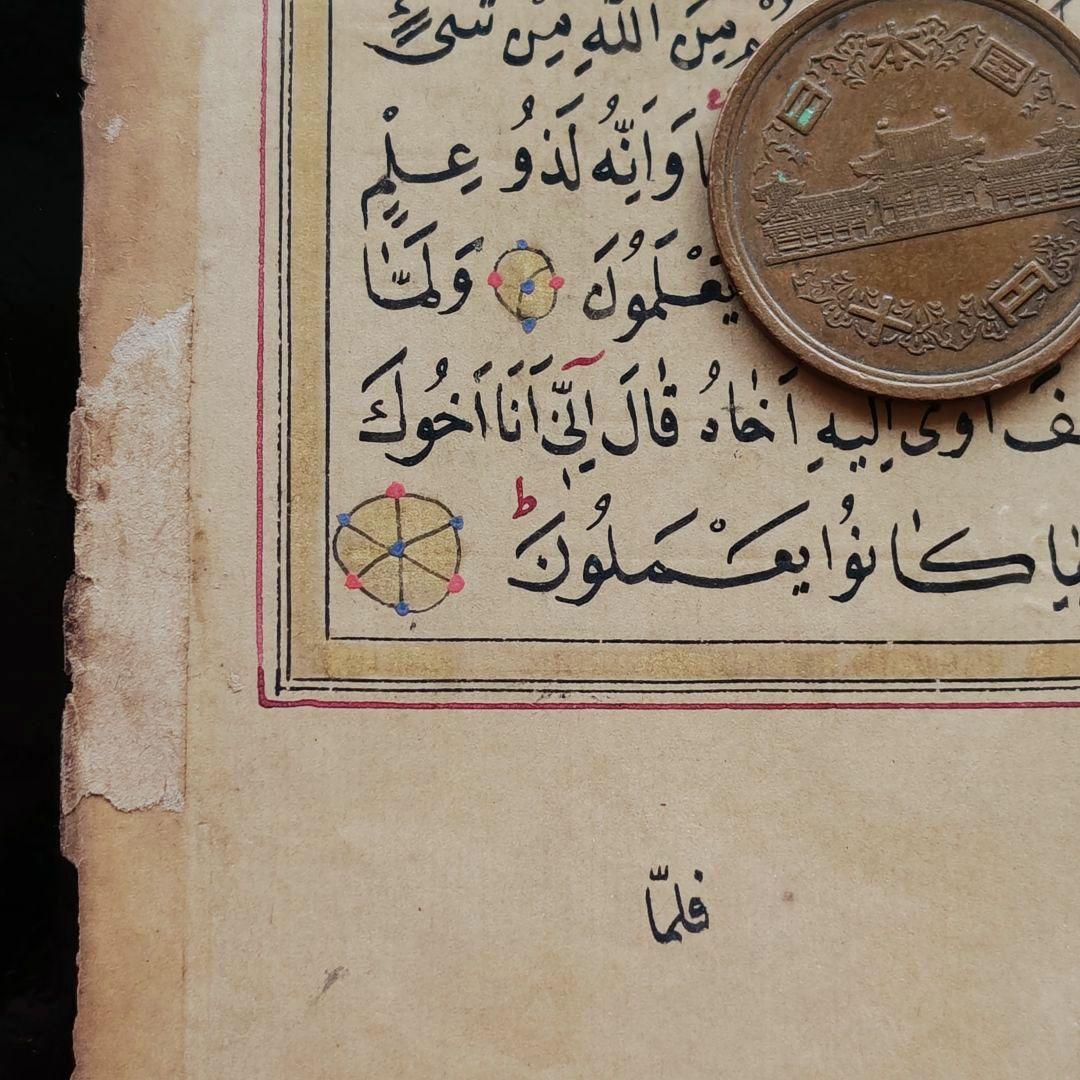 مِنَ اللّٰهِ مِنْ شَىْءٍ
وَاِنَّهُ لَذُو عِلْمٍ
يَعْلَمُونَ وَلَمَّا
اٰوٰى اِلَيْهِ اَخَاهُ قَالَ اِنِّىٓ اَنَا اَخُوكَ
كَانُوا يَعْمَلُونَ ط
فلمّا
日本国
十円